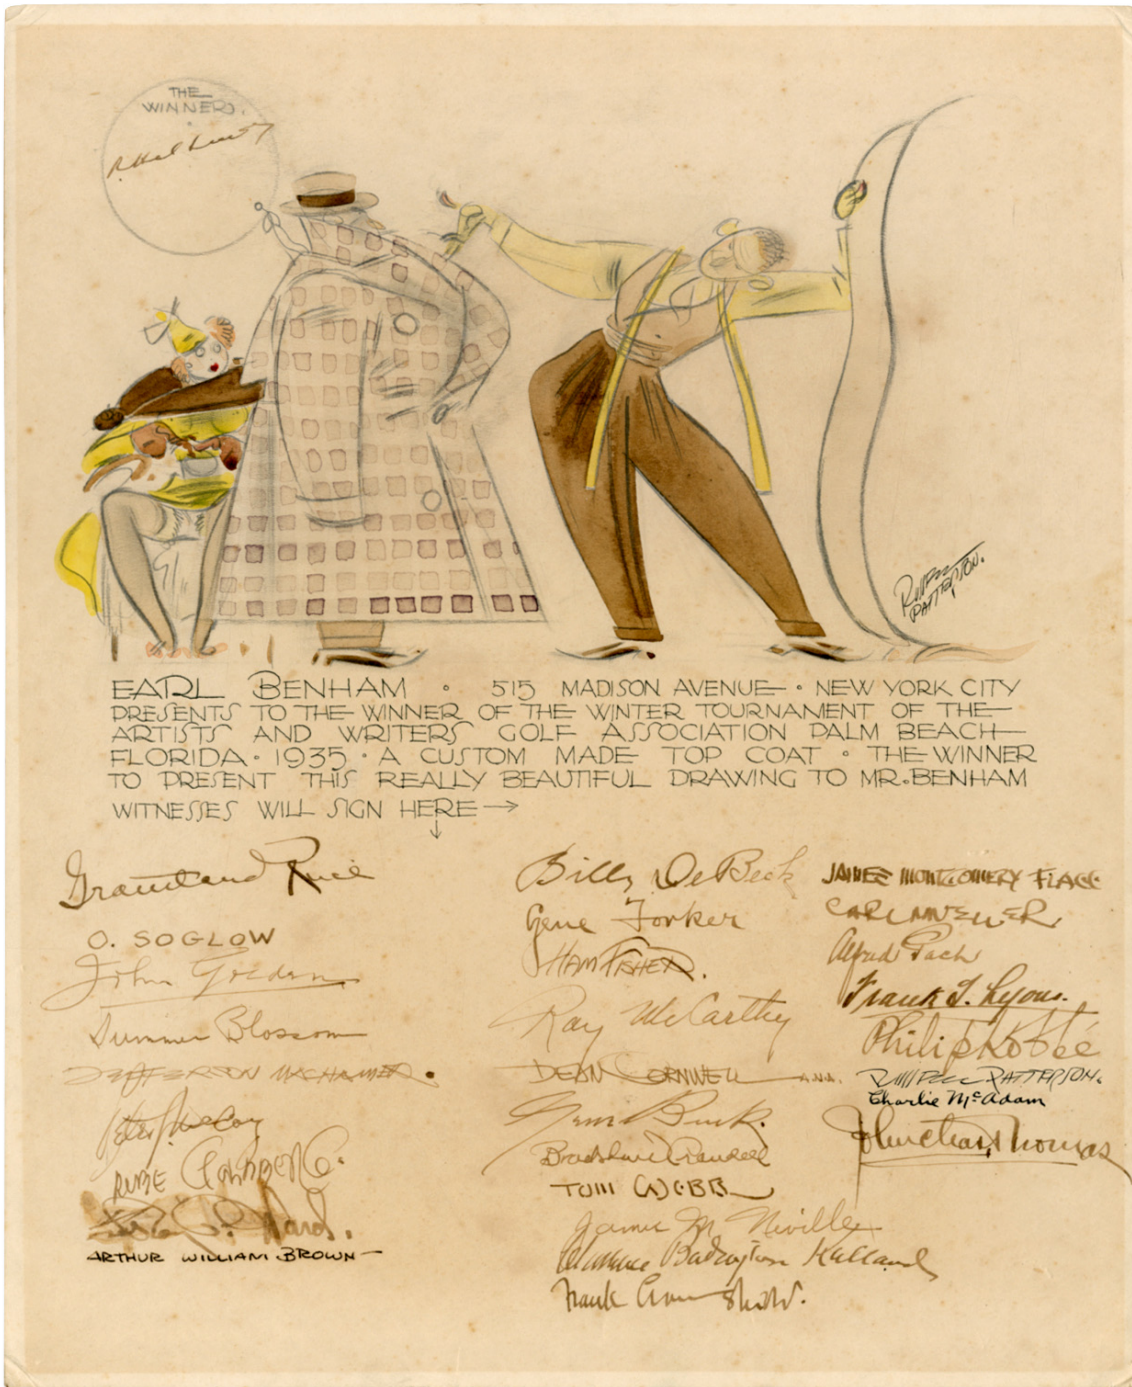 THE
WINNERS.
RUSSELL
PATTERSON.
EARL BENHAM • 515 MADISON AVENUE • NEW YORK CITY
PRESENTS TO THE WINNER OF THE WINTER TOURNAMENT OF THE
ARTISTS AND WRITERS GOLF ASSOCIATION PALM BEACH
FLORIDA • 1935 • A CUSTOM MADE TOP COAT • THE WINNER
TO PRESENT THIS REALLY BEAUTIFUL DRAWING TO MR. BENHAM
WITNESSES WILL SIGN HERE → ↓
Grantland Rice
O. SOGLOW
John Golden
Sumner Blossom
JEFFERSON MACHAMER.
RUBE GOLDBERG.
Ward.
ARTHUR WILLIAM BROWN
Billy DeBeck
Gene Forker
HAM FISHER.
Ray McCarthy
DEAN CORNWELL A.N.A.
Gene Buck.
Bradshaw Crandell
TOM WEBB
James M Neville
Clarence Budington Kelland
Frank Crowninshield.
JAMES MONTGOMERY FLAGG
CARL MUELLER
Alfred Pach
Frank J. Lyons.
Philip Kobbé
RUSSELL PATTERSON.
Charlie McAdam
John Chas. Thomas